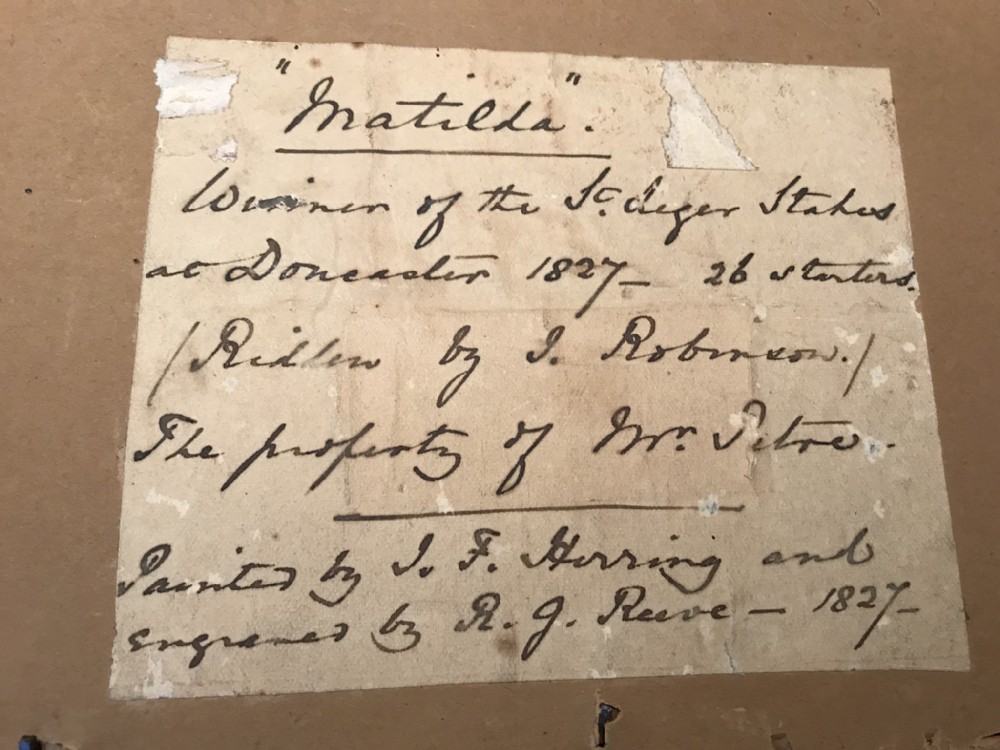 "Matilda".
Winner of the St. Leger Stakes
at Doncaster 1827 — 26 starters.
(Ridden by J. Robinson.)
The property of Mr. Petre.
Painted by J. F. Herring and
engraved by R. G. Reeve — 1827 —